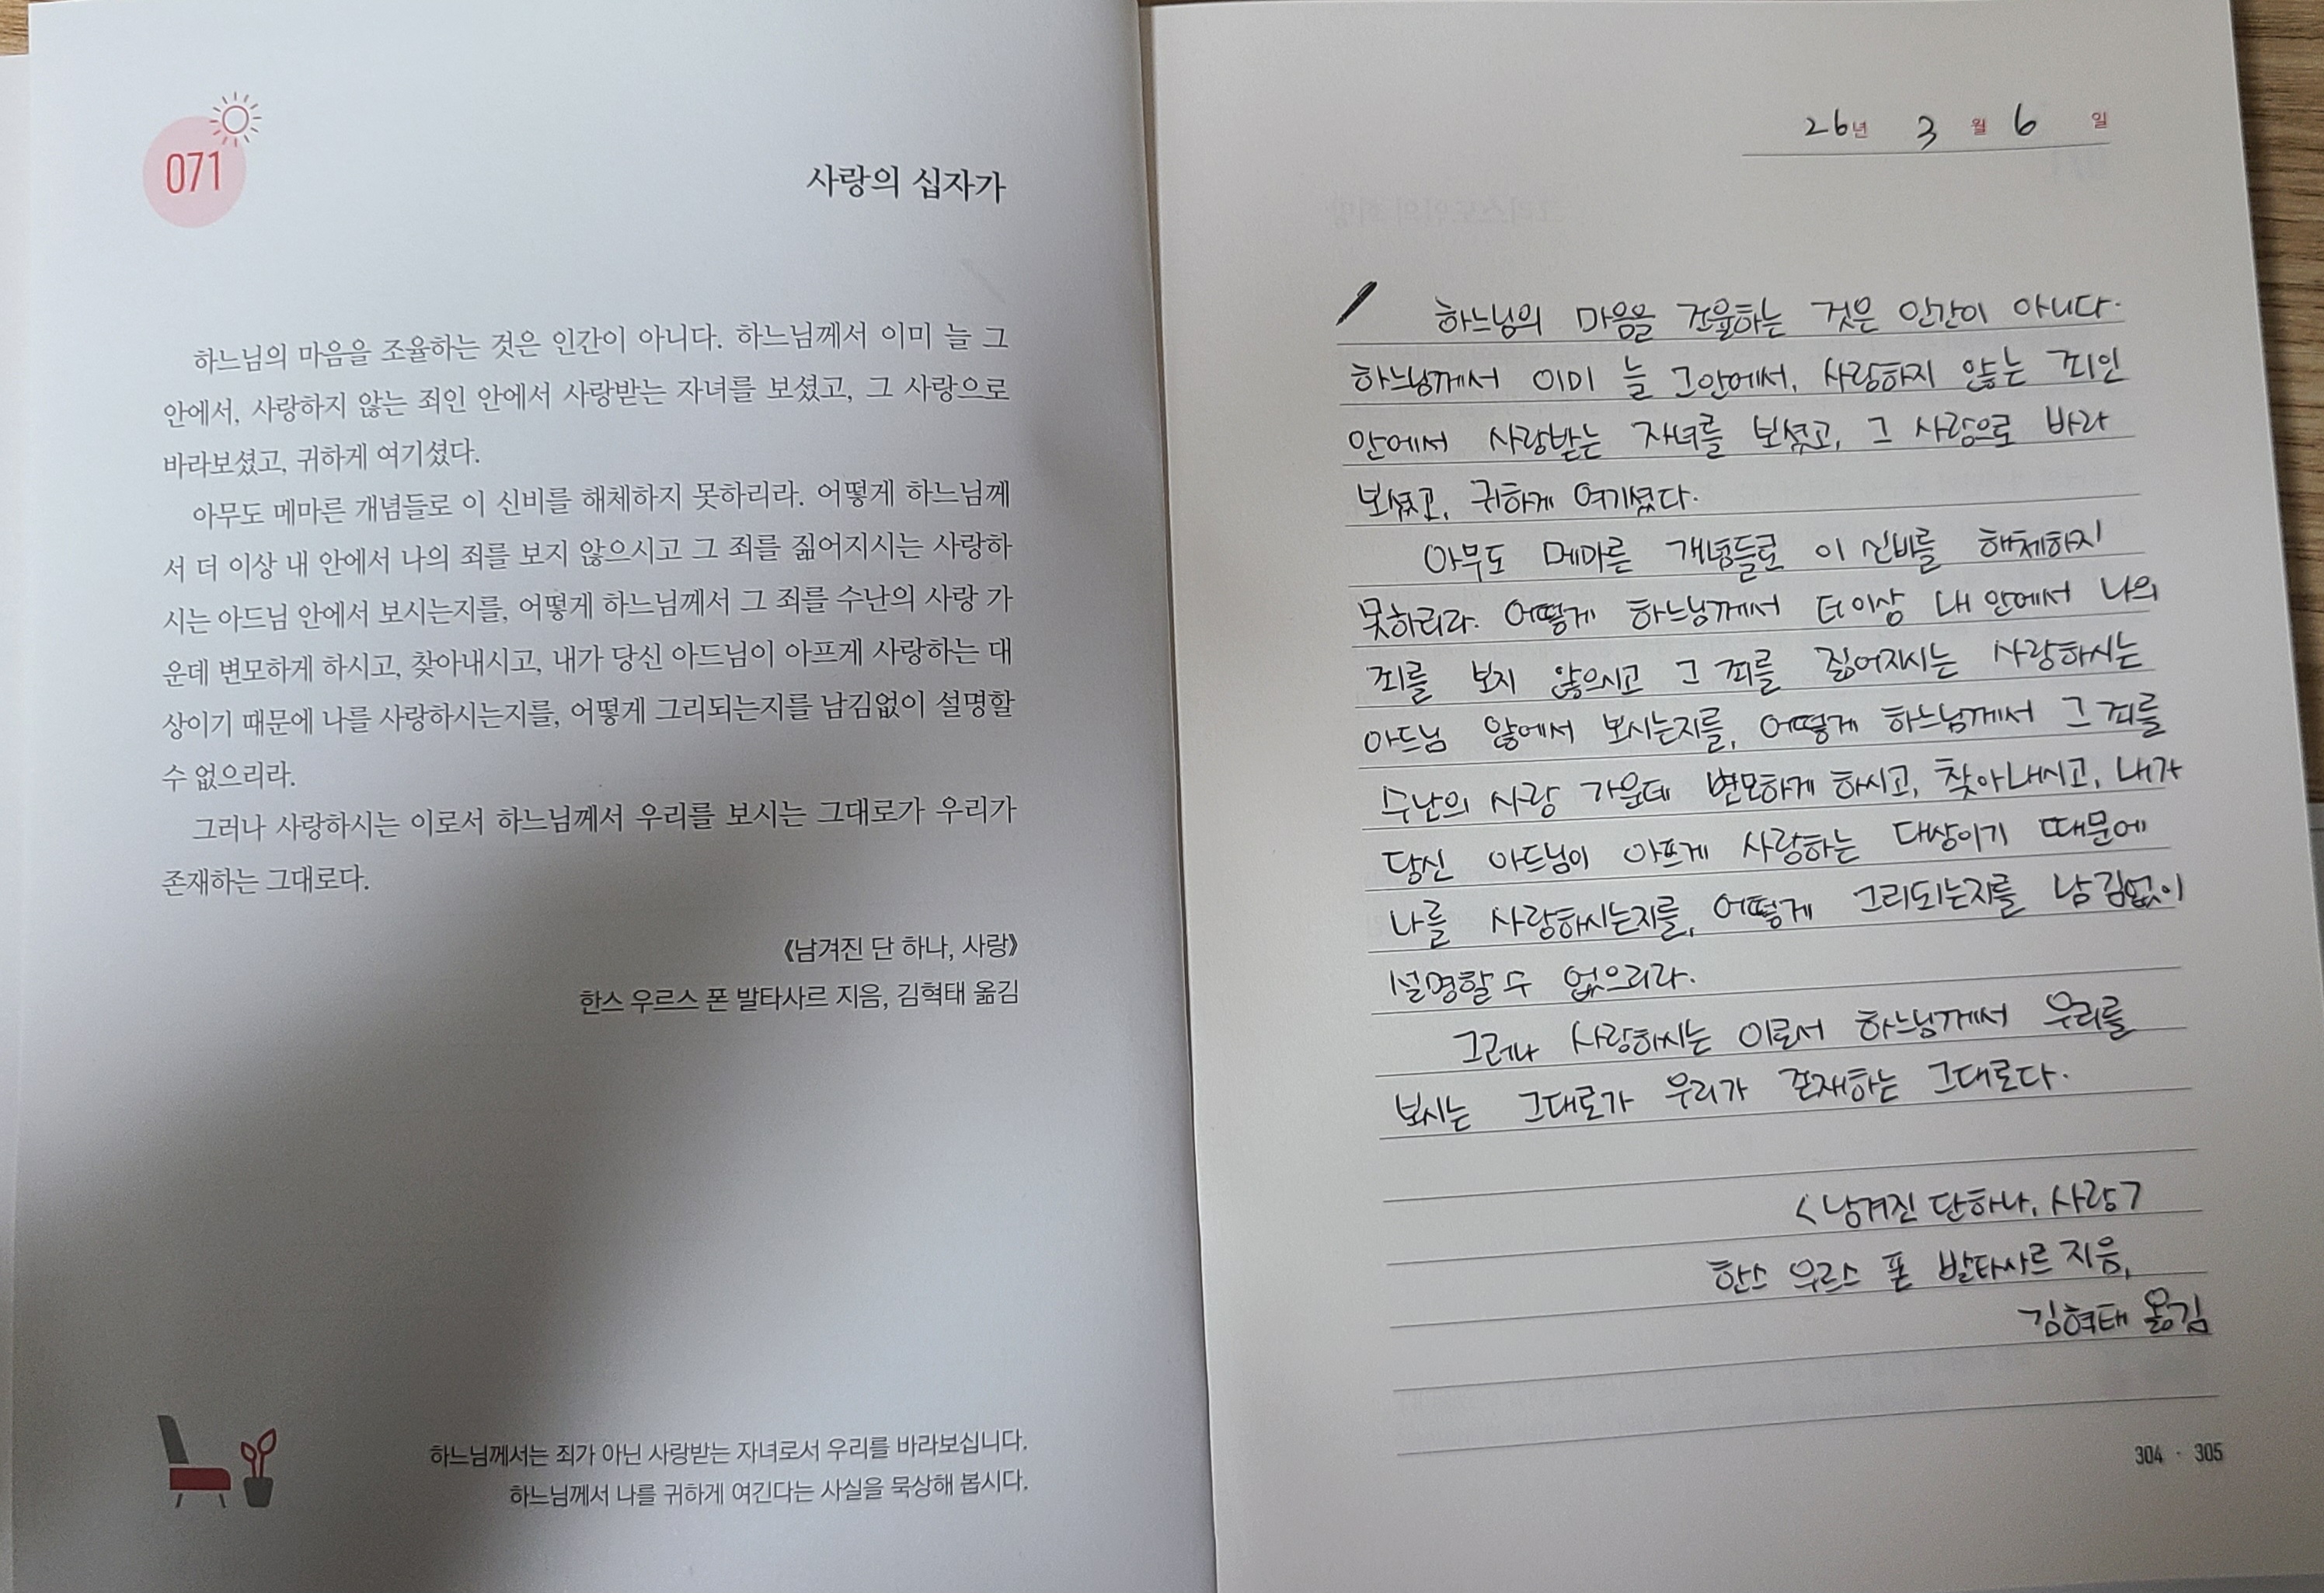 071
사랑의 십자가
하느님의 마음을 조율하는 것은 인간이 아니다. 하느님께서 이미 늘 그
안에서, 사랑하지 않는 죄인 안에서 사랑받는 자녀를 보셨고, 그 사랑으로
바라보셨고, 귀하게 여기셨다.
아무도 메마른 개념들로 이 신비를 해체하지 못하리라. 어떻게 하느님께
서 더 이상 내 안에서 나의 죄를 보지 않으시고 그 죄를 짊어지시는 사랑하
시는 아드님 안에서 보시는지를, 어떻게 하느님께서 그 죄를 수난의 사랑 가
운데 변모하게 하시고, 찾아내시고, 내가 당신 아드님이 아프게 사랑하는 대
상이기 때문에 나를 사랑하시는지를, 어떻게 그리되는지를 남김없이 설명할
수 없으리라.
그러나 사랑하시는 이로서 하느님께서 우리를 보시는 그대로가 우리가
존재하는 그대로다.
《남겨진 단 하나, 사랑》
한스 우르스 폰 발타사르 지음, 김혁태 옮김
하느님께서는 죄가 아닌 사랑받는 자녀로서 우리를 바라보십니다.
하느님께서 나를 귀하게 여긴다는 사실을 묵상해 봅시다.
26년 3월 6일
하느님의 마음을 조율하는 것은 인간이 아니다.
하느님께서 이미 늘 그안에서, 사랑하지 않는 죄인
안에서 사랑받는 자녀를 보셨고, 그 사랑으로 바라
보셨고, 귀하게 여기셨다.
아무도 메마른 개념들로 이 신비를 해체하지
못하리라. 어떻게 하느님께서 더이상 내 안에서 나의
죄를 보지 않으시고 그 죄를 짊어지시는 사랑하시는
아드님 않에서 보시는지를, 어떻게 하느님께서 그 죄를
수난의 사랑 가운데 변모하게 하시고, 찾아내시고, 내가
당신 아드님이 아프게 사랑하는 대상이기 때문에
나를 사랑하시는지를, 어떻게 그리되는지를 남김없이
설명할 수 없으리라.
그러나 사랑하시는 이로서 하느님께서 우리를
보시는 그대로가 우리가 존재하는 그대로다.
<남겨진 단하나, 사랑>
한스 우르스 폰 발타사르 지음,
김혁태 옮김
304 · 305